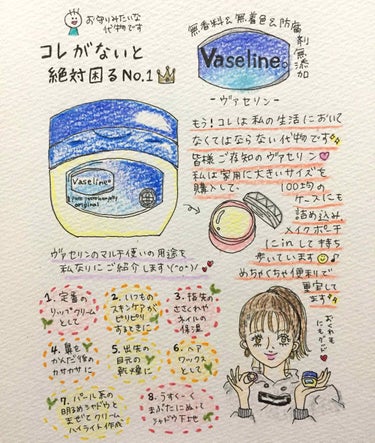 お守りみたいな
代物です
コレがないと
絶対困るNo.1
無香料&無着色&防腐剤無添加
Vaseline®
-ヴァセリン-
もう!コレは私の生活において
なくてはならない代物です
皆様ご存知のヴァセリン
私は家用に大きいサイズを
購入して、
100均の
ケースにも
詰め込み
メイクポーチ
にinして持ち
歩いています
めちゃくちゃ便利で
重宝してます
Vaseline
original
ヴァセリンのマルチ使いの用途を
私なりにご紹介します\(^o^)/
1. 定番の
リップクリーム
として
2. いつもの
スキンケアが
ピリピリ
するときに
3. 指先の
ささくれや
ネイルの
保湿
4. 鼻を
かんだ後の
カサカサに
5. 出先の
目元の
乾燥に
6. ヘア
ワックス
として
7. パール系の
明るめシャドウと
まぜてクリーム
ハイライト作成
8. うすーく
まぶたにぬって
シャドウ下地